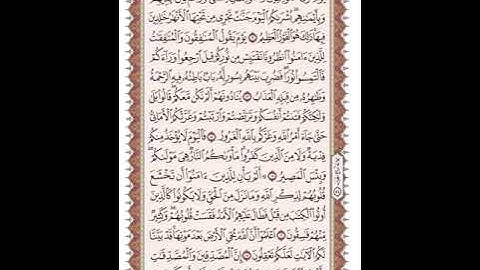 وَبِأَيْمَٰنِهِم بُشْرَىٰكُمُ ٱلْيَوْمَ جَنَّٰتٌ تَجْرِى مِن تَحْتِهَا ٱلْأَنْهَٰرُ خَٰلِدِينَ
فِيهَا ذَٰلِكَ هُوَ ٱلْفَوْزُ ٱلْعَظِيمُ ١٢ يَوْمَ يَقُولُ ٱلْمُنَٰفِقُونَ وَٱلْمُنَٰفِقَٰتُ
لِلَّذِينَ ءَامَنُوا۟ ٱنظُرُونَا نَقْتَبِسْ مِن نُّورِكُمْ قِيلَ ٱرْجِعُوا۟ وَرَآءَكُمْ
فَٱلْتَمِسُوا۟ نُورًا فَضُرِبَ بَيْنَهُم بِسُورٍ لَّهُۥ بَابٌۢ بَاطِنُهُۥ فِيهِ ٱلرَّحْمَةُ
وَظَٰهِرُهُۥ مِن قِبَلِهِ ٱلْعَذَابُ ١٣ يُنَادُونَهُمْ أَلَمْ نَكُن مَّعَكُمْ قَالُوا۟ بَلَىٰ
وَلَٰكِنَّكُمْ فَتَنتُمْ أَنفُسَكُمْ وَتَرَبَّصْتُمْ وَٱرْتَبْتُمْ وَغَرَّتْكُمُ ٱلْأَمَانِىُّ
حَتَّىٰ جَآءَ أَمْرُ ٱللَّهِ وَغَرَّكُم بِٱللَّهِ ٱلْغَرُورُ ١٤ فَٱلْيَوْمَ لَا يُؤْخَذُ مِنكُمْ
فِدْيَةٌ وَلَا مِنَ ٱلَّذِينَ كَفَرُوا۟ مَأْوَىٰكُمُ ٱلنَّارُ هِىَ مَوْلَىٰكُمْ
وَبِئْسَ ٱلْمَصِيرُ ١٥ أَلَمْ يَأْنِ لِلَّذِينَ ءَامَنُوٓا۟ أَن تَخْشَعَ
قُلُوبُهُمْ لِذِكْرِ ٱللَّهِ وَمَا نَزَلَ مِنَ ٱلْحَقِّ وَلَا يَكُونُوا۟ كَٱلَّذِينَ
أُوتُوا۟ ٱلْكِتَٰبَ مِن قَبْلُ فَطَالَ عَلَيْهِمُ ٱلْأَمَدُ فَقَسَتْ قُلُوبُهُمْ وَكَثِيرٌ
مِّنْهُمْ فَٰسِقُونَ ١٦ ٱعْلَمُوٓا۟ أَنَّ ٱللَّهَ يُحْىِ ٱلْأَرْضَ بَعْدَ مَوْتِهَا قَدْ بَيَّنَّا
لَكُمُ ٱلْءَايَٰتِ لَعَلَّكُمْ تَعْقِلُونَ ١٧ إِنَّ ٱلْمُصَّدِّقِينَ وَٱلْمُصَّدِّقَٰتِ